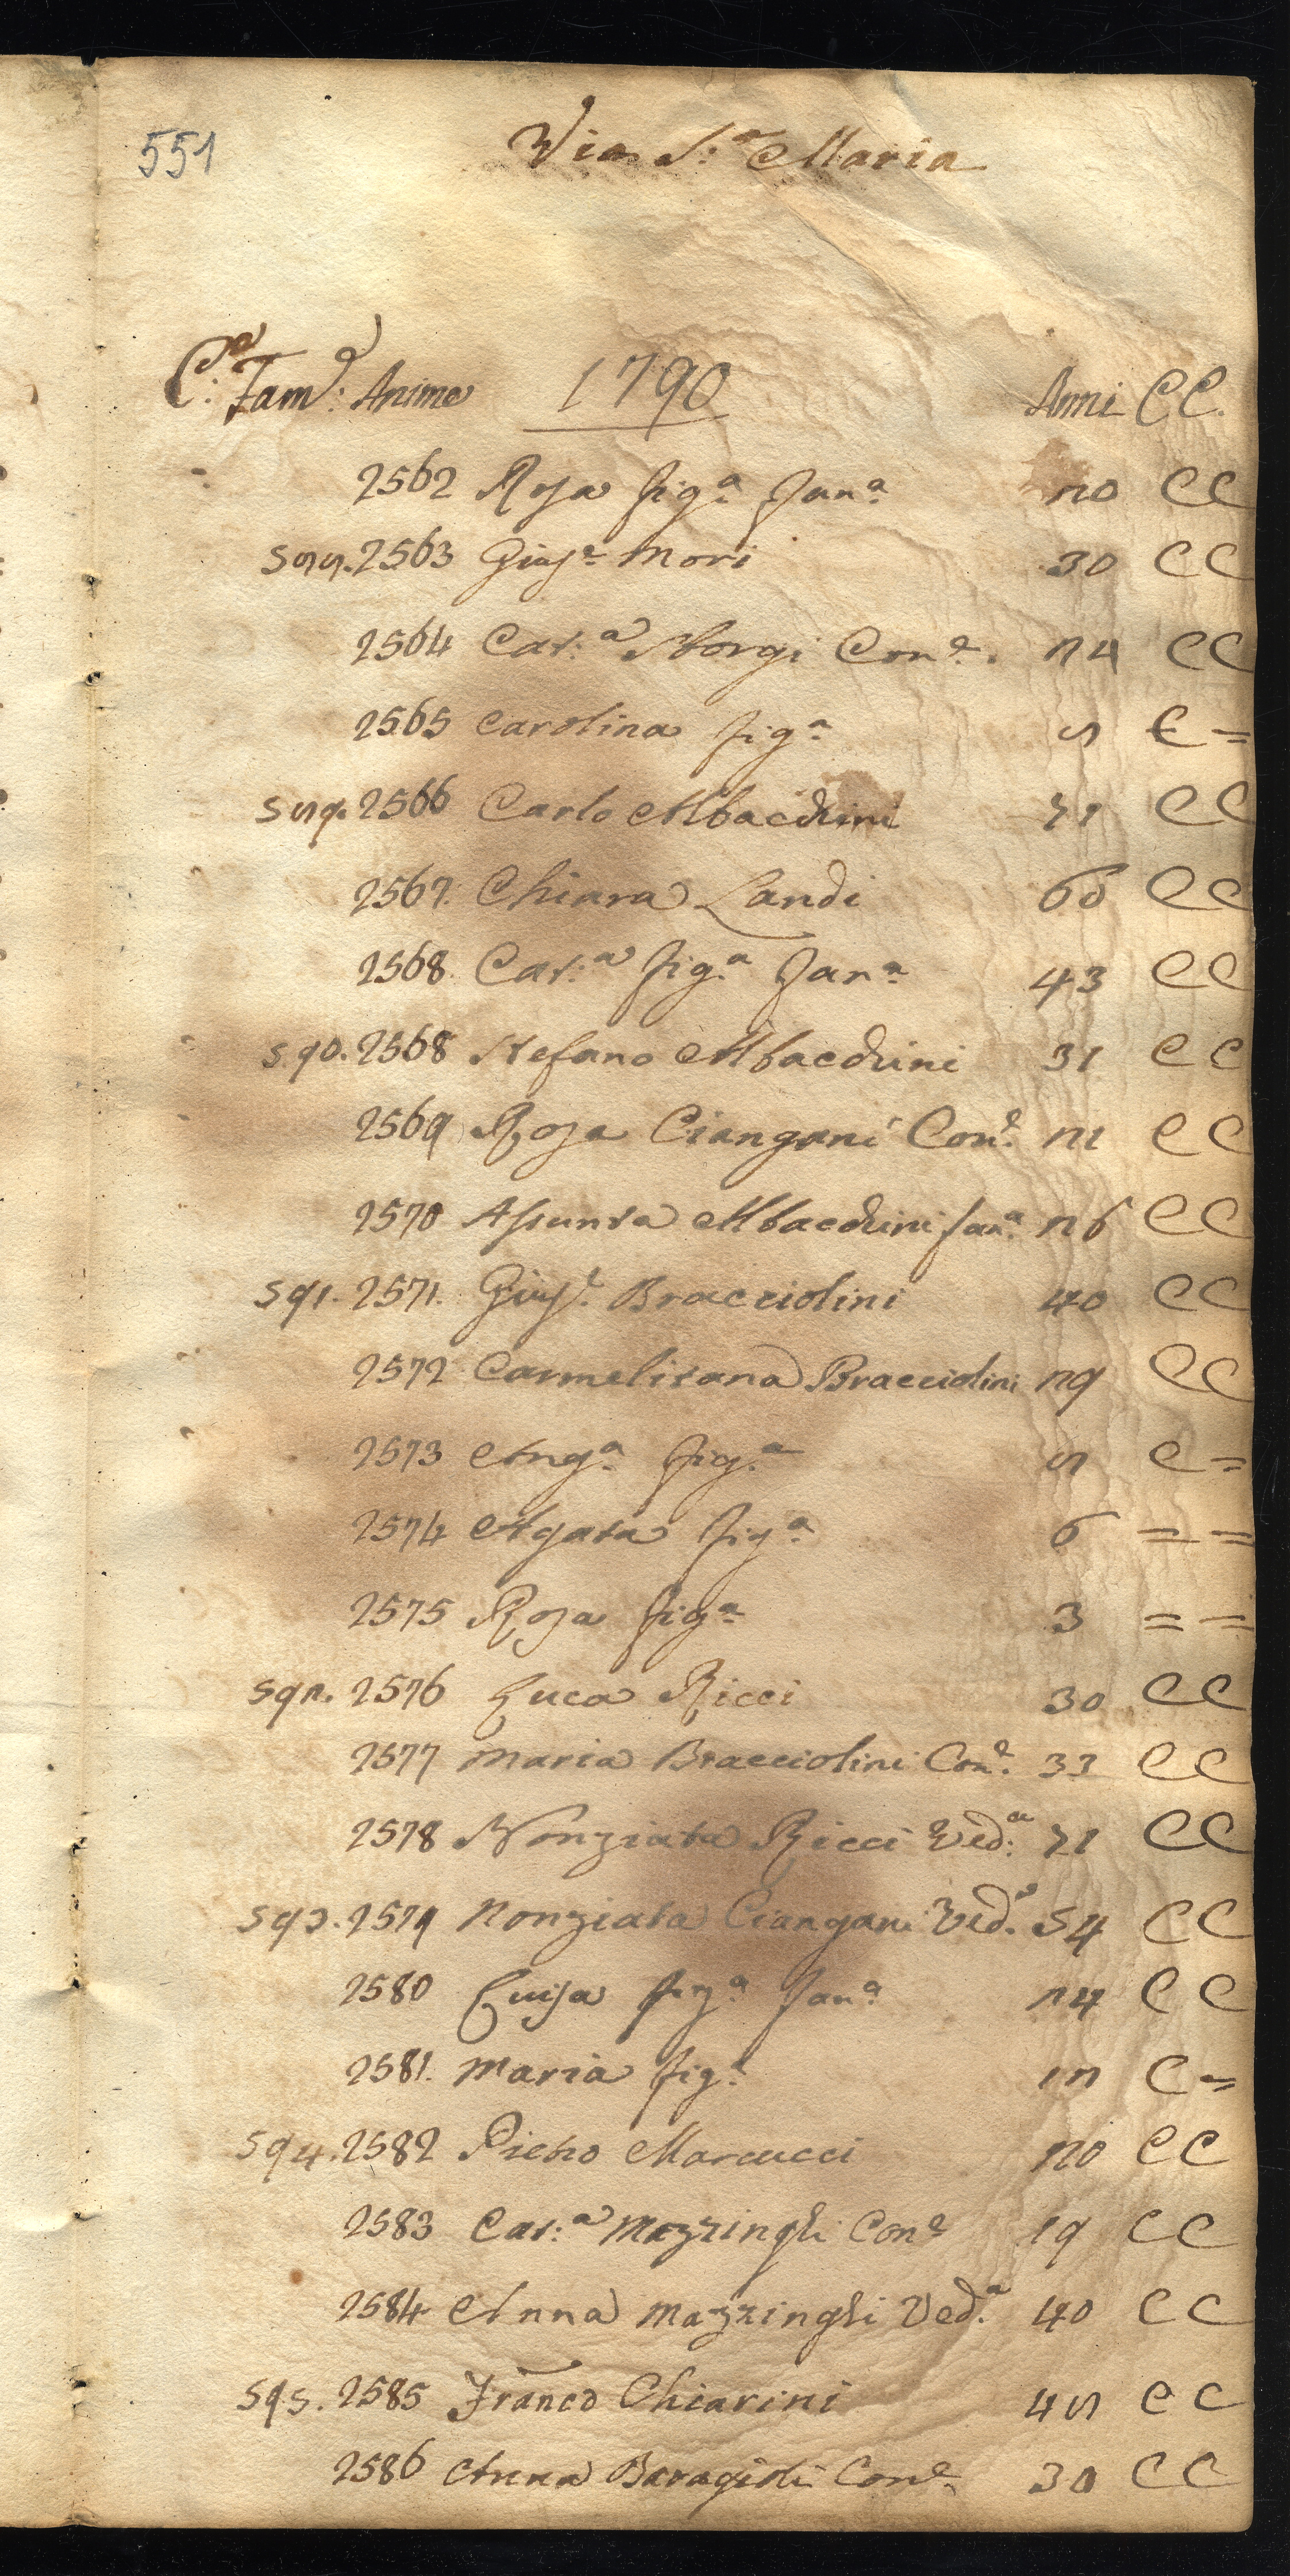 551
Via S.ª Maria
C.e Fam.e: Anime 1790 Anni CC.
2562 Rosa fig.ª fan.ª 20 CC
588. 2563 Gius.e Mori 30 CC
2564 Cat:ª Norgi Con.e 24 CC
2565 Carolina fig.ª 8 C =
589. 2566 Carlo Abbacchini 71 CC
2567. Chiara Landi 60 CC
2568. Cat:ª fig.ª fan.ª 43 CC
590. 2568 Stefano Abbacchini 31 CC
2569 Rosa Ciangani Con.e 21 CC
2570 Assunta Abbacchini fan.ª 26 CC
591. 2571. Gius.e Bracciolini 40 CC
2572 Carmelitana Bracciolini 29 CC
2573 Ang.ª fig.ª 8 C =
2574 Agata fig.ª 6 = =
2575 Rosa fig.ª 3 = =
592. 2576 Luca Ricci 30 CC
2577 Maria Bracciolini Con.e 33 CC
2578 Nonziata Ricci Ved:ª 71 CC
593. 2579 Nonziata Ciangani Ved.ª 54 CC
2580 Luisa fig.ª fan.ª 24 CC
2581. Maria fig.ª 12 C =
594. 2582 Pietro Marcucci 20 CC
2583 Cat:ª Mazzinghi Con.e 19 CC
2584 Anna Mazzinghi Ved.ª 40 CC
595. 2585 Franco Chiarini 48 CC
2586 Anna Baragioli Con.e 30 CC